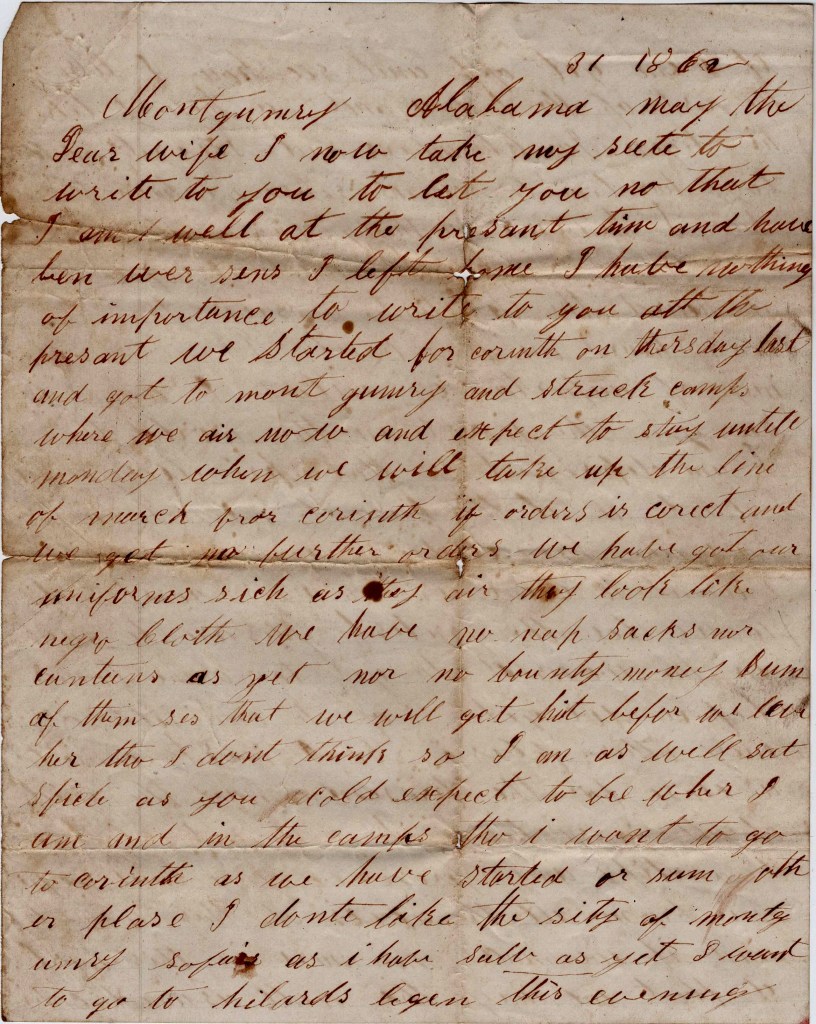 31 1862
Montgumry Alabama may the
Dear wife I now take my seete to
write to you to let you no that
I am well at the presant time and have
ben ever sens I left home I have nothing
of importance to write to you att the
presant we started for corinth on thersday last
and got to mont gumry and struck camps
where we air now and expect to stay untill
monday when we will take up the line
of march for corinth if orders is corect and
we get no further orders we have got our
uniforms sich as they air they look like
negro cloth we have no nap sacks nor
canteens as yet nor no bounty money Sum
of them ses that we will get hit befor we leve
her tho I dont think so I am as well sat
sfide as you cold expect to be wher I
am and in the camps tho i want to go
to corinth as we have started or sum oth
er plase I donte like the sity of montg
umry sofair as i have saw as yet I want
to go to hilards legen this evening